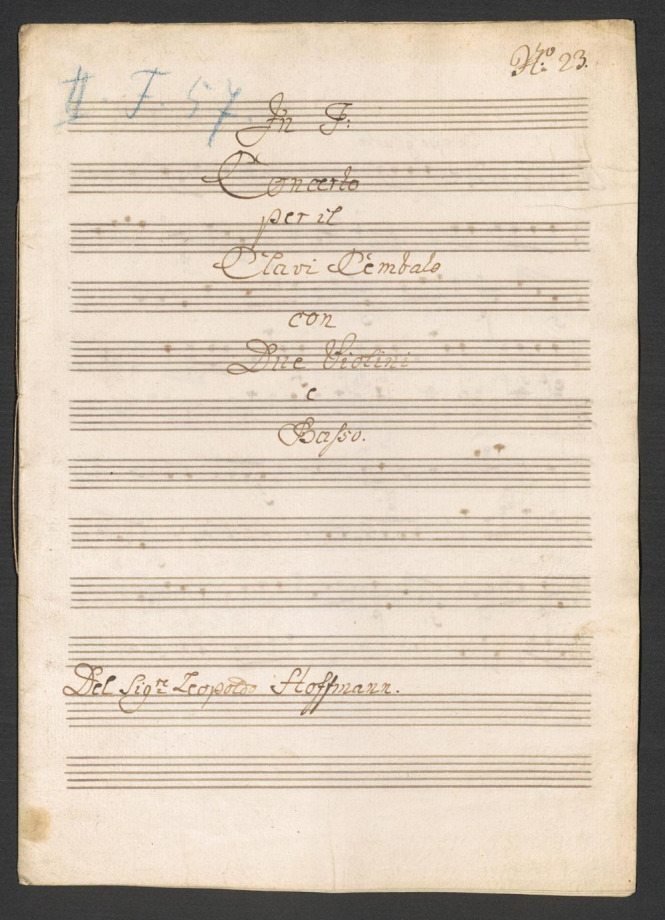 No: 23.
II. F. 57.
In F:
Concerto
per il
Clavi Cembalo
con
Due Violini
e
Basso.
Del Sigre Leopoldo Hoffmann.